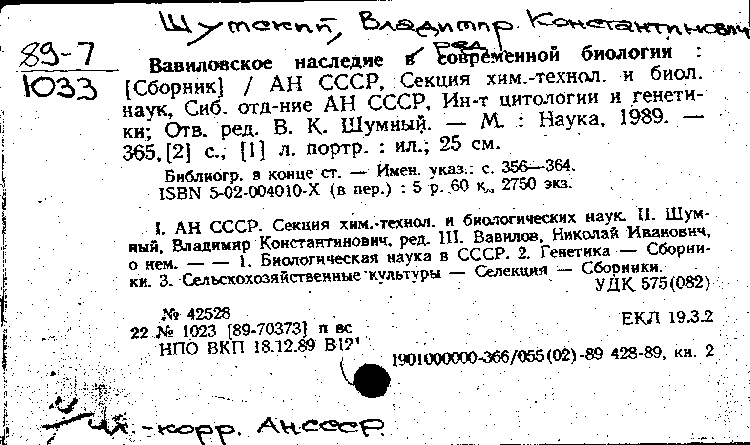 Шумский, Владимир Константинович
ред.
89-7
1033
Вавиловское наследие в современной биологии :
[Сборник] / АН СССР, Секция хим.-технол. и биол.
наук, Сиб. отд-ние АН СССР, Ин-т цитологии и генети-
ки; Отв. ред. В. К. Шумный. — М. : Наука, 1989. —
365,[2] с., [1] л. портр. : ил.; 25 см.
Библиогр. в конце ст. — Имен. указ.: с. 356—364.
ISBN 5-02-004010-X (в пер.) : 5 р. 60 к., 2750 экз.
I. АН СССР. Секция хим.-технол. и биологических наук. II. Шум-
ный, Владимир Константинович, ред. III. Вавилов, Николай Иванович,
о нем. — — 1. Биологическая наука в СССР. 2. Генетика — Сборни-
ки. 3. Сельскохозяйственные культуры — Селекция — Сборники.
УДК 575(082)
№ 42528
22 № 1023 [89-70373] п вс
ЕКЛ 19.3.2
НПО ВКП 18.12.89 В121
1901000000-366/055(02)-89 428-89, кн. 2
чл.-корр. АН СССР